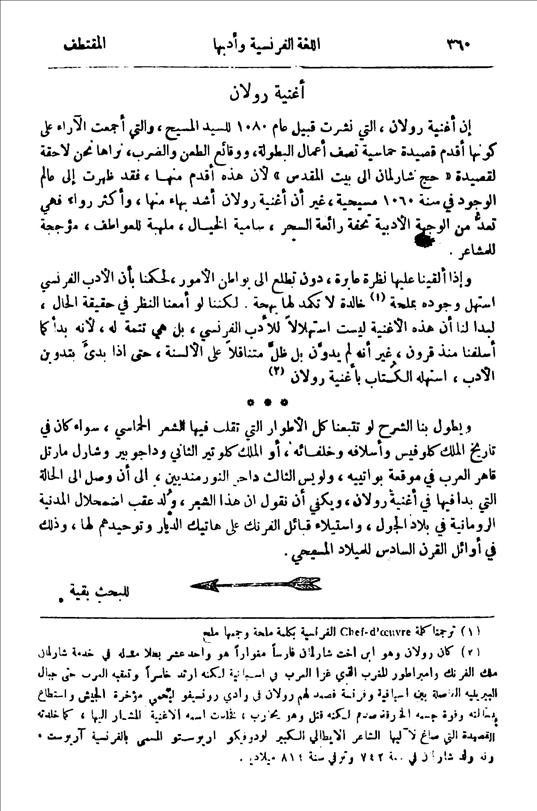 ٣٦٠ اللغة الفرنسية وأدبها المقتطف
أغنية رولان
إن أغنية رولان ، التي نشرت قبيل عام ١٠٨٠ للسيد المسيح ، والتي أجمعت الآراء على
كونها أقدم قصيدة حماسية تصف أعمال البطولة، ووقائع الطعن والضرب، نراها نحن لاحقة
لقصيدة « حج شارلمان الى بيت المقدس » لأن هذه أقدم منهـا ، فقد ظهرت إلى عالم
الوجود في سنة ١٠٦٠ مسيحية ، غير أن أغنية رولان أشد بهاء منها ، وأكثر رواء فهي
تعدُّ من الوجهة الأدبية تحفة رائعة السحر ، سامية الخيـال ، ملهبة للعواطف ، مؤججة
للمشاعر .
وإذا ألقينا عليها نظرة عابرة ، دون تطلع الى بواطن الأمور ، لحكمنا بأن الأدب الفرنسي
استهل وجوده بملحة (١) خالدة لا تكمد لها بهجة . لكننا لو أمعنا النظر في حقيقة الحال ،
لبدا لنا أن هذه الأغنية ليست استهلالاً للأدب الفرنسي ، بل هي تتمة له ، لأنه بدأ كما
أسلفنا منذ قرون ، غير أنه لم يدوَّن بل ظلَّ متناقلاً على الألسنة ، حتى اذا بدئَ بتدوين
الأدب ، استهله الكُتاب بأغنية رولان (٢)
* * *
ويطول بنا الشرح لو تتبعنا كل الأطوار التي تقلب فيها الشعر الحماسي ، سواء كان في
تاريخ الملك كلوفيس وأسلافه وخلفائه ، أو الملك كلوتير الثاني وداجوبير وشارل مارتل
قاهر العرب في موقعة بواتييه ، ولويس الثالث داحر النورمنديين ، الى أن وصل الى الحالة
التي بدا فيها في أغنية رولان ، ويكفي أن نقول ان هذا الشعر ، وُلد عقب اضمحلال المدنية
الرومانية في بلاد الجول ، واستيلاء قبائل الفرنك على هاتيك الديَّار وتوحيدهم لها ، وذلك
في أوائل القرن السادس للميلاد المسيحي .
للبحث بقية .
(١) ترجمنا كلمة Chef-d'œuvre الفرنسية بكلمة ملحة وجمعها ملح
(٢) كان رولان وهو ابن اخت شارلمان فارساً مغواراً هو واحد عشر بطلا مثله في خدمة شارلمان
ملك الفرنك وامبراطور للغرب الذي غزا العرب في اسبانية لكنه ارتد خاسراً وتعقبه العرب حتى جبال
البيرينيه الفاصلة بين اسبانية وفرنسة فصمد لهم رولان في وادي رونسيفو ليحمي مؤخرة الجيش واستطاع
ببسالته وقوة جسمه الخارقة صدهم لكنه قتل وهو يحارب ، فخلدت اسمه الاغنية المشار اليها ، كما خلدته
القصيدة التي صاغ لآليها الشاعر الايطالي الكبير لودوفيكو اريوستو المسمى بالفرنسية آريوست .
وقد ولد شارلمان في سنة ٧٤٢ وتوفي سنة ٨١٤ ميلادية .